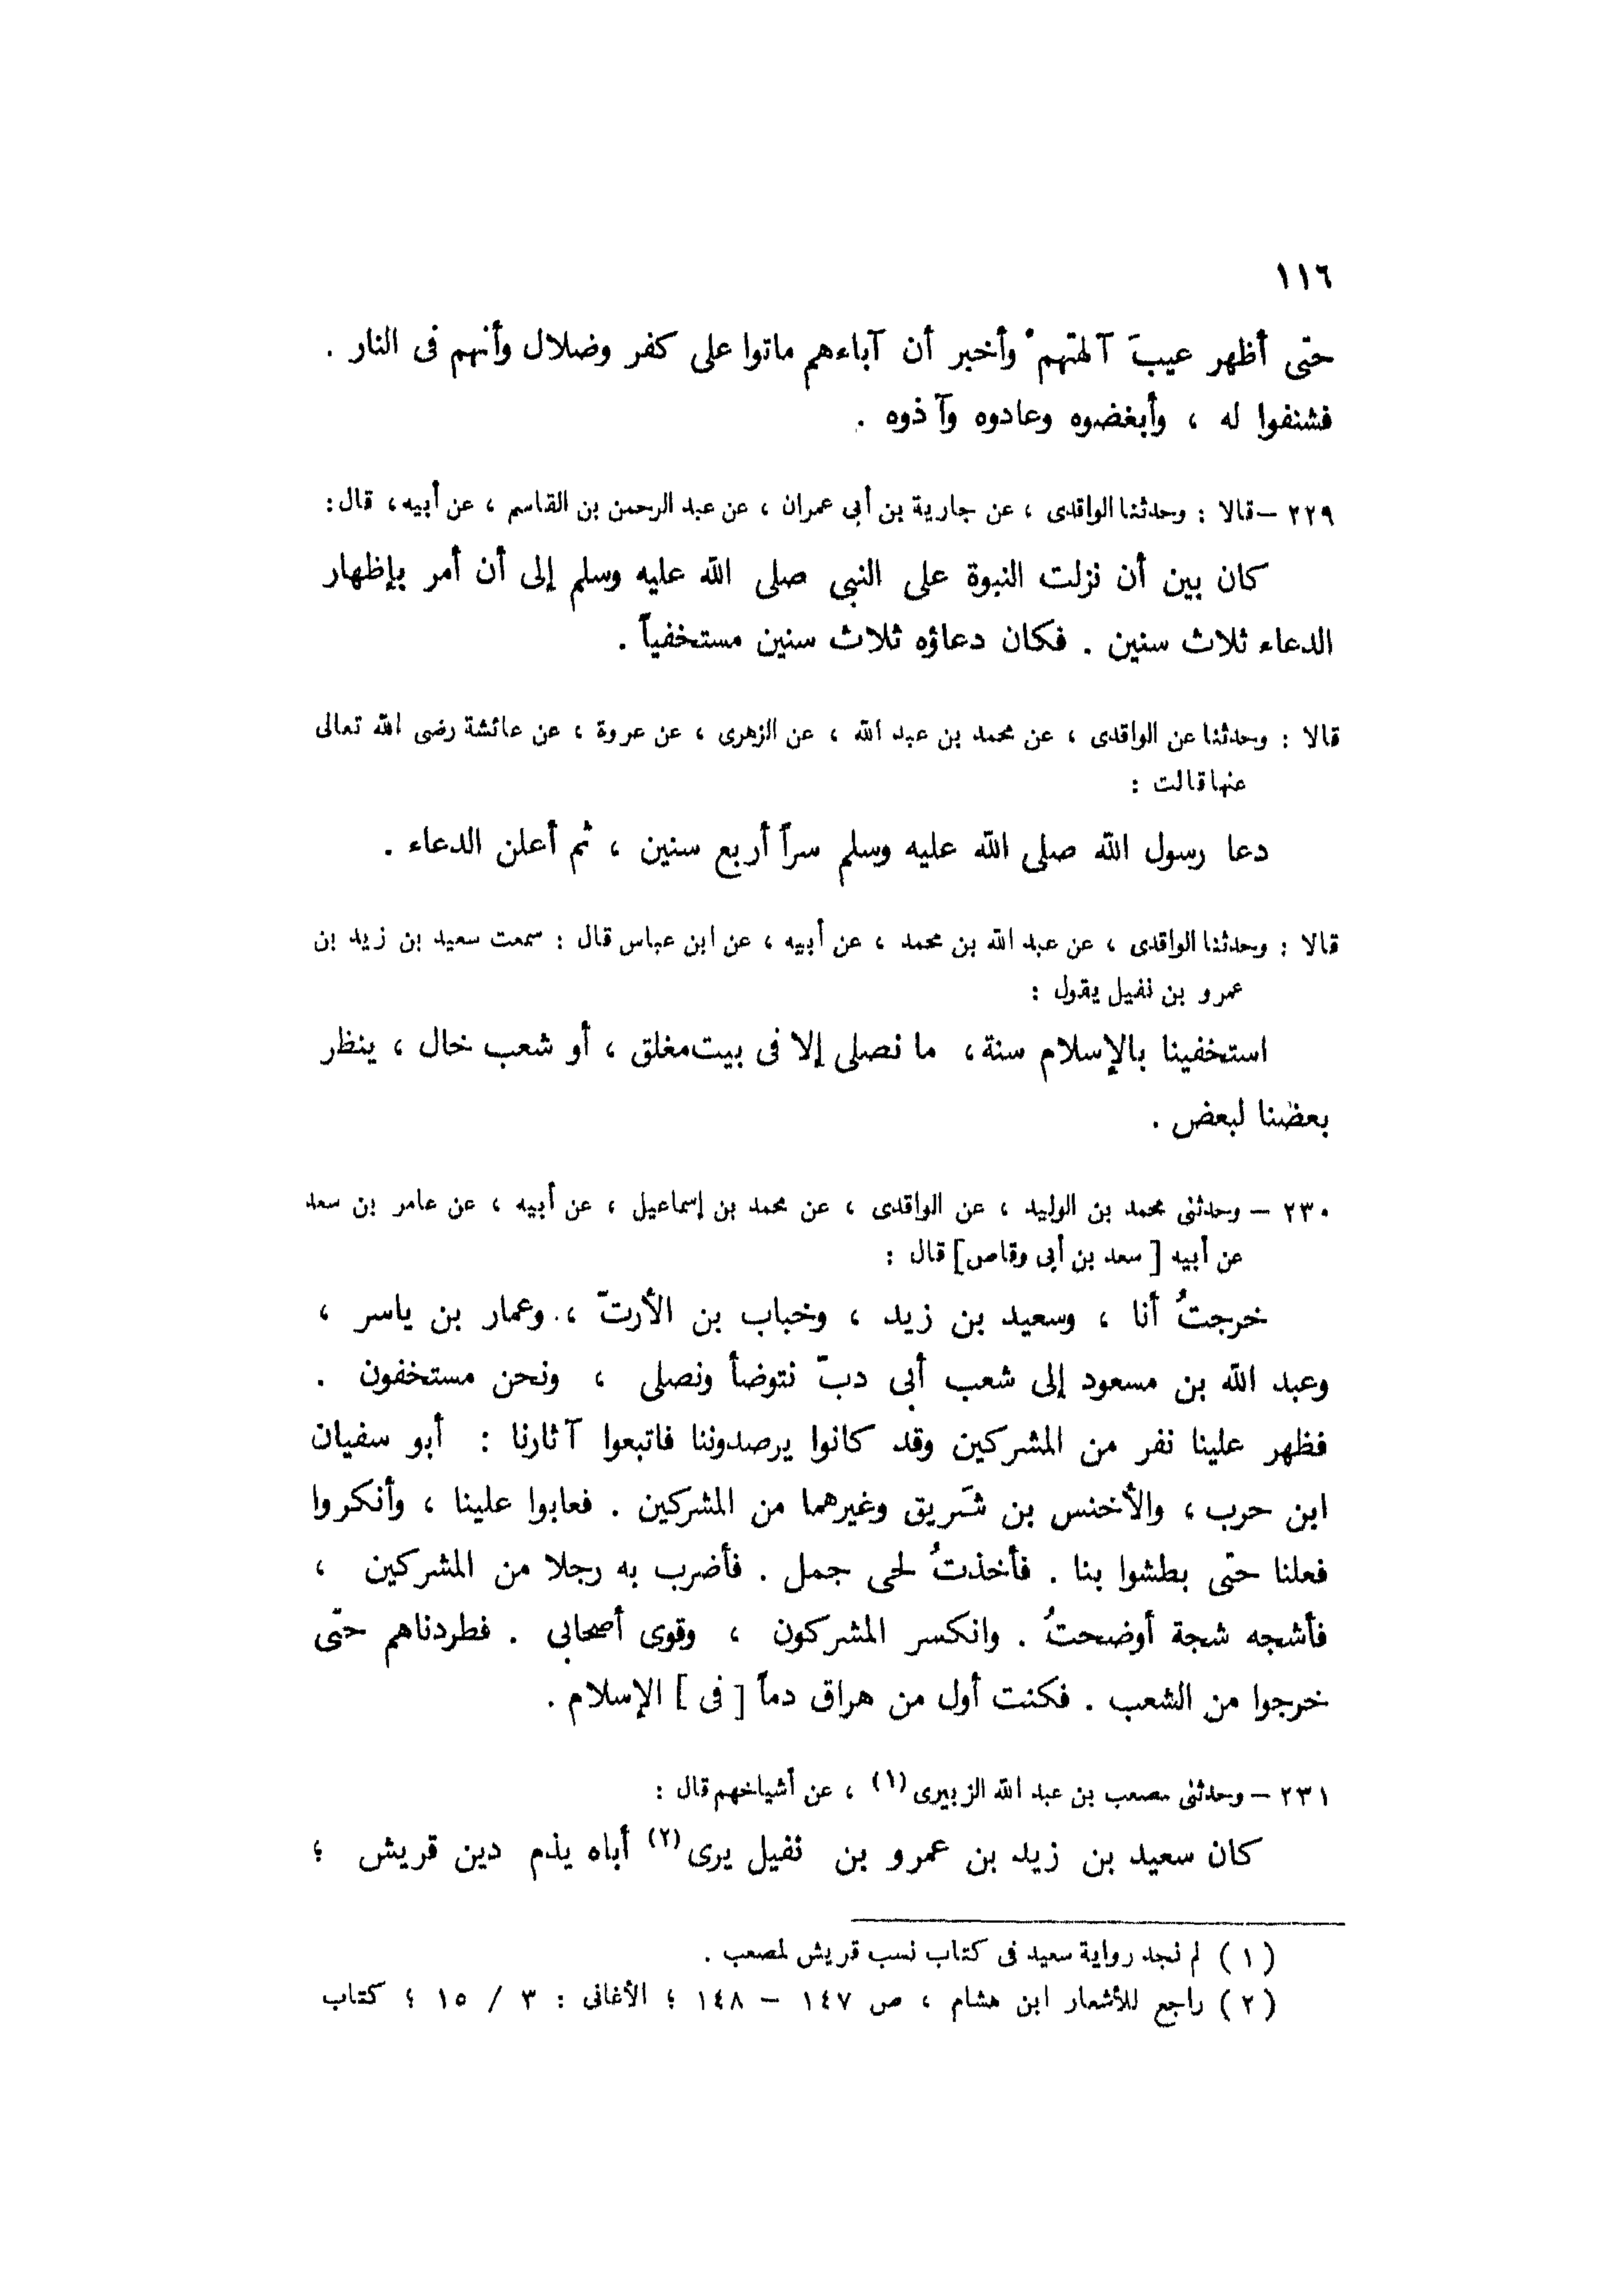 ١١٦
حتى أظهر عيبَ آلهتهمْ وأخبر أن آباءهم ماتوا على كفر وضلال وأنهم فى النار .
فشنفوا له ، وأبغضوه وعادوه وآذوه .
٢٢٩ – قالا : وحدثنا الواقدى ، عن جارية بن أبى عمران ، عن عبد الرحمن بن القاسم ، عن أبيه ، قال :
كان بين أن نزلت النبوة على النبى صلى الله عليه وسلم إلى أن أمر بإظهار
الدعاء ثلاث سنين . فكان دعاؤه ثلاث سنين مستخفياً .
قالا : وحدثنا عن الواقدى ، عن محمد بن عبد الله ، عن الزهرى ، عن عروة ، عن عائشة رضى الله تعالى
عنها قالت :
دعا رسول الله صلى الله عليه وسلم سراً أربع سنين ، ثم أعلن الدعاء .
قالا : وحدثنا الواقدى ، عن عبد الله بن محمد ، عن أبيه ، عن ابن عباس قال : سمعت سعيد بن زيد بن
عمرو بن نفيل يقول :
استخفينا بالإسلام سنة ، ما نصلى إلا فى بيت مغلق ، أو شعب خال ، ينظر
بعضنا لبعض .
٢٣٠ – وحدثنى محمد بن الوليد ، عن الواقدى ، عن محمد بن إسماعيل ، عن أبيه ، عن عامر بن سعد
عن أبيه [ سعد بن أبى وقاص ] قال :
خرجتُ أنا ، وسعيد بن زيد ، وخباب بن الأرتّ ، وعمار بن ياسر ،
وعبد الله بن مسعود إلى شعب أبى دبّ نتوضأ ونصلى ، ونحن مستخفون .
فظهر علينا نفر من المشركين وقد كانوا يرصدوننا فاتبعوا آثارنا : أبو سفيان
ابن حرب ، والأخنس بن شَريق وغيرهما من المشركين . فعابوا علينا ، وأنكروا
فعلنا حتى بطشوا بنا . فأخذتُ لحى جمل . فأضرب به رجلا من المشركين ،
فأشجه شجة أوضحتُ . وانكسر المشركون ، وقوى أصحابى . فطردناهم حتّى
خرجوا من الشعب . فكنت أول من هراق دماً [ فى ] الإسلام .
٢٣١ – وحدثنى مصعب بن عبد الله الزبيرى (١) ، عن أشياخهم قال :
كان سعيد بن زيد بن عمرو بن نفيل يرى (٢) أباه يذم دين قريش ؛
( ١ ) لم نجد رواية سعيد فى كتاب نسب قريش لمصعب .
( ٢ ) راجع للأشعار ابن هشام ، ص ١٤٧ – ١٤٨ ؛ الأغانى : ٣ / ١٥ ؛ كتاب